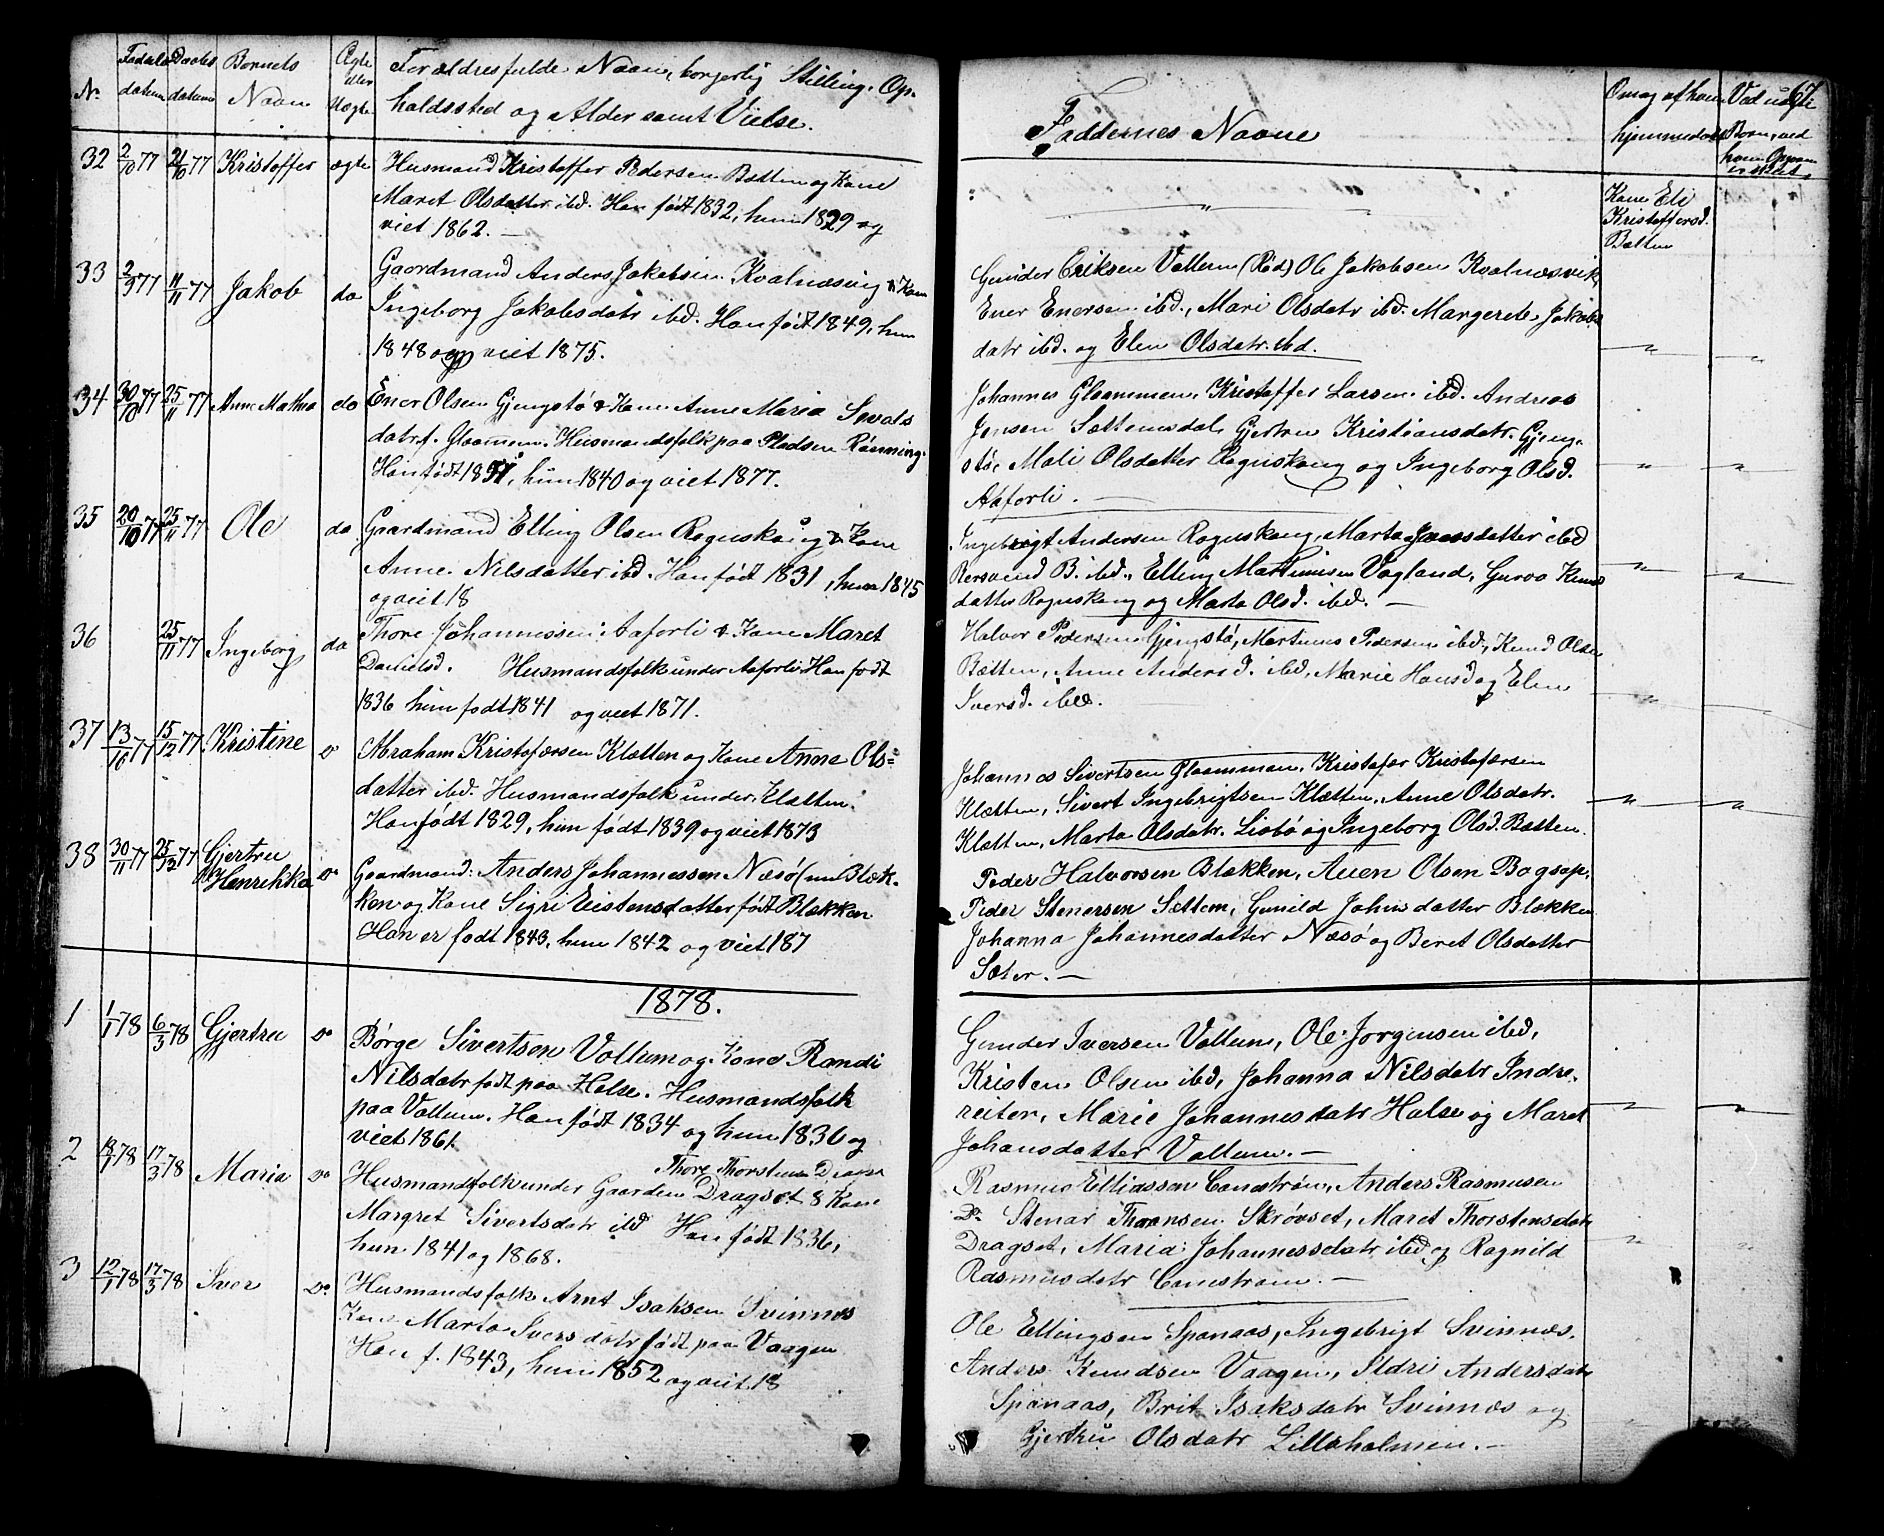 No Fødsels Daabs Bornets Ægte Forældres fulde Navn, borgerlig Stilling, Op-
datum datum Navn eller Uægte holdssted og Alder samt Vielse.
32 2/10 77 21/10 77 Kristoffer ægte Husmand Kristoffer Pedersen Bætten og Kone
Maret Olsdatter ibd. Han født 1832, hun 1829 og
viet 1862. —
33 2/9 77 11/11 77 Jakob do Gaardmand Anders Jakobsen Kvalnæsvig & Kone
Ingeborg Jakobsdatr ibd. Han født 1849, hun
1848 og viet 1875.
34 30/10 77 25/11 77 Anne Mathea do Ener Olsen Gjengstø & Kone Anne Maria Sivals
datr f. Glaamen. Husmandsfolk paa Pladsen Rønning.
Han født 1851, hun 1840 og viet 1877.
35 20/10 77 25/11 77 Ole do Gaardmand Elling Olsen Rognskaug & Kone
Anne Nilsdatter ibd. Han født 1831, hun 1845
og viet 18
36 25/11 77 Ingeborg do Thore Johannessen Aaforli & Kone Maret
Danielsd. Husmandsfolk under Aaforli Han født
1836 hun født 1841 og viet 1871.
37 13/10 77 15/12 77 Kristine do Abraham Kristofersen Klætten og Kone Anne Ols=
datter ibd. Husmandsfolk under Klætten.
Han født 1829, hun født 1839 og viet 1873
38 30/11 77 25/12 77 Gjertru Henrikka do Gaardmand: Anders Johannessen Næsø (nu Blæk-
ken og Kone Sigri Eistensdatter født Blækken
Han er født 1843, hun 1842 og viet 187
1878.
1 1/1 78 6/3 78 Gjertru do Børge Sivertsen Vollum og Kone Randi
Nilsdatr født paa Halse. Husmandsfolk
paa Vollum. Han født 1834 og hun 1836 og
viet 1861
2 78 17/3 78 Maria do Thore Thorstens
Husmandsfolk under Gaarden Dragset & Kone
Margret Sivertsdatr ibd Han født 1836,
hun 1841 og 1868.
3 12/1 78 17/3 78 Iver Do. Husmandsfolk Arnt Isaksen Svinnæs
Kone Marta Iversdatr født paa Vaagen
Han f. 1843, hun 1852 og viet 18
67
Faddernes Navne
Omsag af hans hjemmedaab
Ved uægte Børn, ved
Kone Eli
Kristoffersd.
Bætten
Gunder Eriksen Vollum (Rød) Ole Jakobsen Kvalnæsvik,
Ener Enersen ibd., Mari Olsdatr ibd. Margrete Jakobs
datr ibd. og Elen Olsdatr ibd.
Johannes Glaammen, Kristoffer Larsen ibd. Andreas
Jensen Sættemsdal, Gjertru Kristiansdatr. Gjeng-
stø, Mali Olsdatter Rognskaug og Ingeborg Olsd.
Aaforli. —
Ingebrigt Andersen Rognskaug, Marta Jensdatter ibd
Bersvend B. ibd., Elling Martinusen Vagland, Guroo Knuds
datter Rognskaug og Marta Olsd. ibd. —
Halvor Pedersen Gjengstø, Martinus Pedersen ibd., Knud Olsen
Bætten, Anne Andersd. ibd, Marie Hansd og Elen
Iversd. ibd.
Johannes Sivertsen Glaamman, Kristofer Kristofersen
Klætten, Sivert Ingebrigtsen Klætten, Anne Olsdatr.
Klætten, Marta Olsdatr. Liabø og Ingeborg Olsd. Bætten.
Peder Halvorsen Blækken, Aven Olsen Bogsøp.
Peder Stenersen Sættem, Gunild Johnsdatter Blækken
Johanna Johannesdatter Næsø og Beret Olsdatter
Sæter. —
Gunder Iversen Vollum, Ole Jørgensen ibd,
Kristen Olsen ibd, Johanna Nilsdatr Indre-
reiten, Marie Johannesdatr Halse og Maret
Johansdatter Vollum. —
Rasmus Elliassen Canestrøm, Anders Rasmusen
Do. Stenar Thoensen Skrøvset, Maret Thorstensdatr
Dragset, Maria Johannesdatr ibd og Ragnild
Rasmusdatr Canestrøm. —
Ole Ellingsen Spanaas, Ingebrigt Svinnæs.
Anders Knudsen Vaagen, Ildri Andersdatr
Spanaas, Brit Isaksdatr Svinnæs og
Gjertru Olsdatr Lilleholmen. —